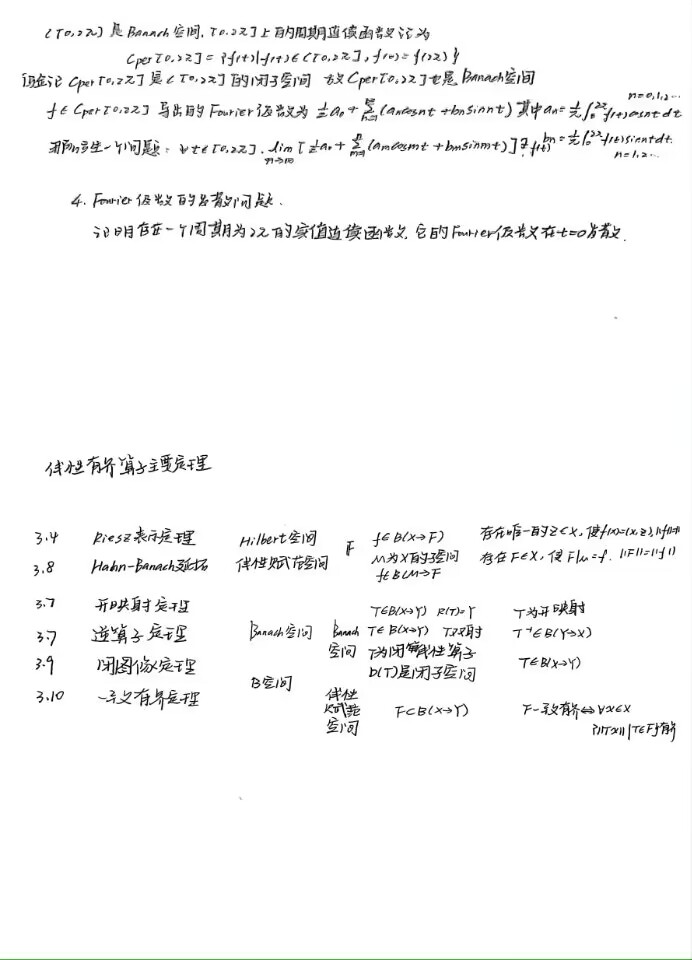 C[0,2π]是Banach空间,[0,2π]上的周期连续函数记为
Cper[0,2π]={f(t)|f(t)∈C[0,2π],f(0)=f(2π)}
Cper[0,2π]是C[0,2π]的闭子空间 故Cper[0,2π]也是Banach空间
f∈Cper[0,2π] 导出的Fourier级数为 ½a₀+∑(n=1,∞)(aₙcosnt+bₙsinnt) 其中aₙ=1/π∫₀^2π f(t)cosntdt n=0,1,2…
产生一个问题: ∀t∈[0,2π]. lim [½a₀+∑(aₘcosmt+bₘsinmt)]=f(t) bₙ=1/π∫₀^2π f(t)sinntdt. n=1,2…
4. Fourier级数的发散问题.
证明存在一个周期为2π的实值连续函数.它的Fourier级数在t=0发散.
线性有界算子主要定理
3.4 Riesz表示定理 Hilbert空间 F f∈B(X→F) 存在唯一的z∈X,使f(x)=(x,z),||f||=||z||
3.8 Hahn-Banach延拓 线性赋范空间 M为X的子空间 f∈B(M→F 存在F∈X,使F|M=f. ||F||=||f||
3.7 开映射定理 T∈B(X→Y) R(T)=Y T为开映射
3.7 逆算子定理 Banach空间 Banach空间 T∈B(X→Y) T双射 T⁻¹∈B(Y→X)
3.9 闭图像定理 T为闭线性算子 D(T)是闭子空间 T∈B(X→Y)
3.10 一致有界定理 B空间 线性赋范空间 F⊂B(X→Y) F一致有界⇔∀x∈X
{||Tx|| | T∈F}有界